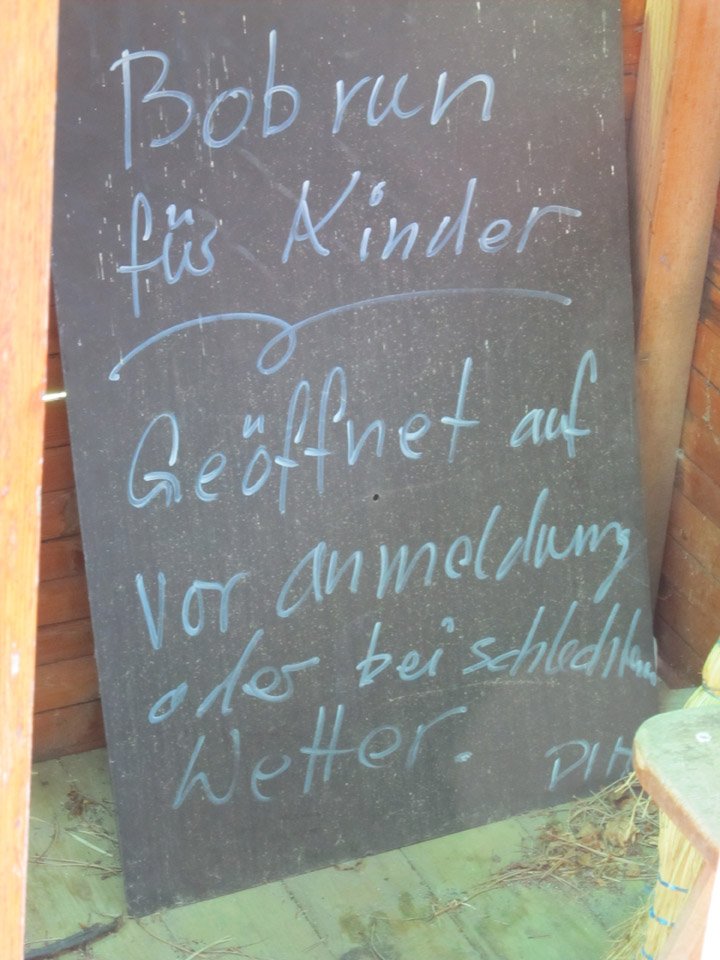 Bob run
für Kinder
Geöffnet auf
vor anmeldung
oder bei schlechtem
Wetter.